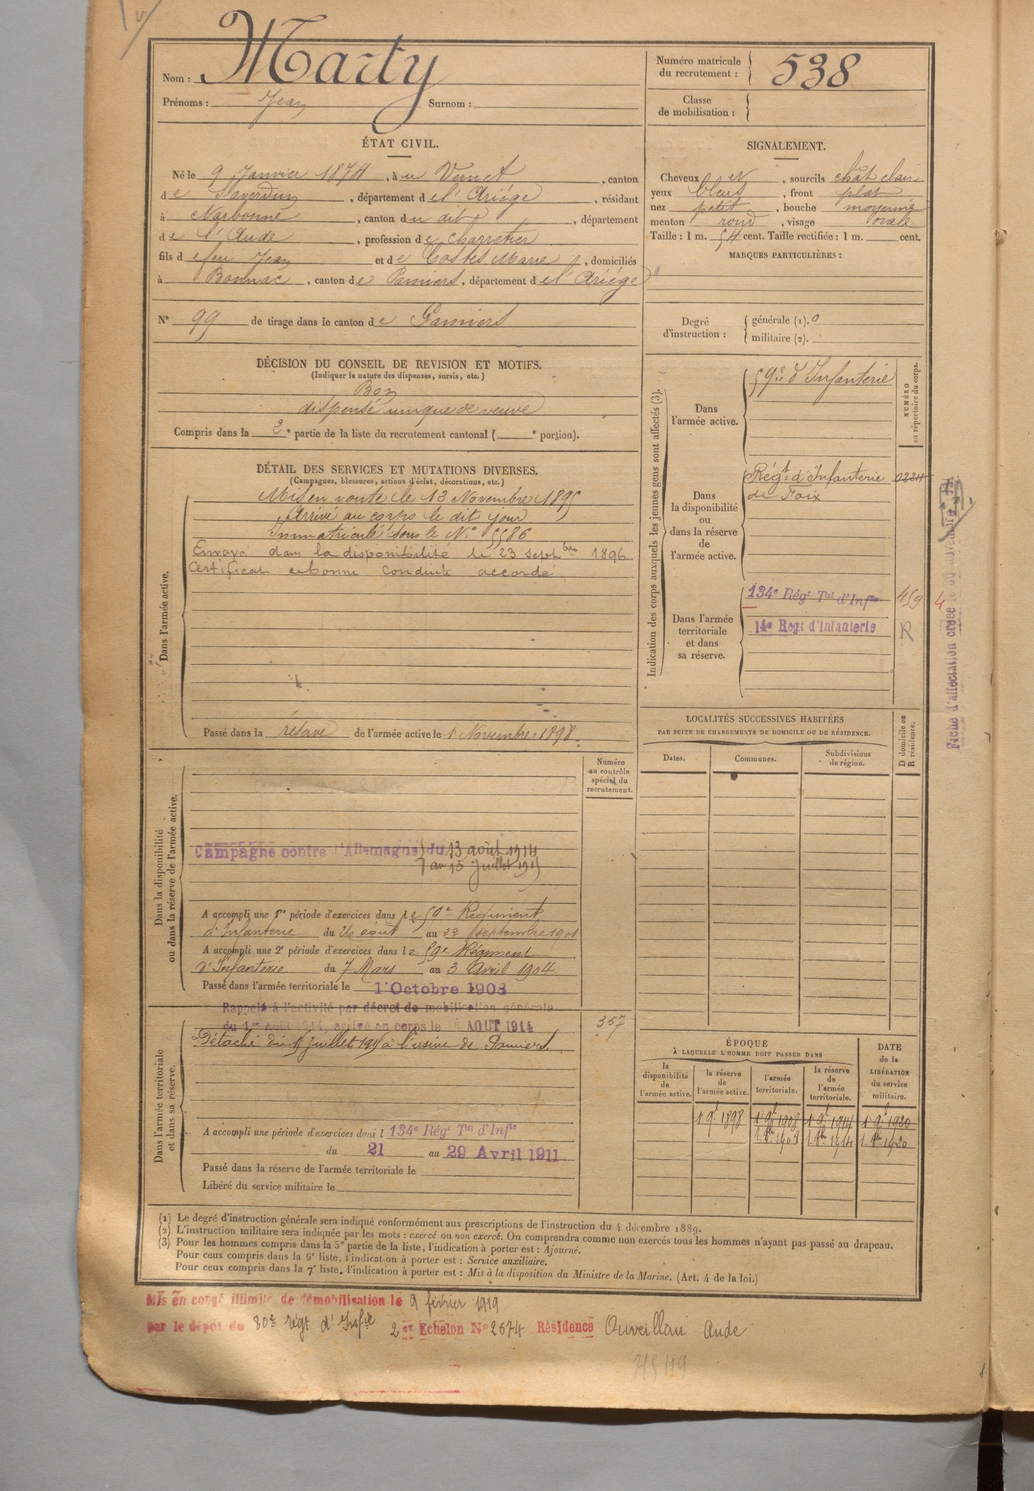 Nom : Marty
Prénoms : Jean Surnom :
Numéro matricule du recrutement : 538
Classe de mobilisation :
ÉTAT CIVIL.
Né le 9 Janvier 1874, à u Vernet, canton
de Saverdun, département de l'Ariège, résidant
à Narbonne, canton du dit, département
de l'Aude, profession de charretier
fils de feu Jean et de Costes Marie, domiciliés
à Bonnac, canton de Pamiers, département de l'Ariège
N° 99 de tirage dans le canton de Pamiers
SIGNALEMENT.
Cheveux et, sourcils chât clair
yeux bleus, front plat
nez petit, bouche moyenne
menton rond, visage ovale
Taille : 1 m. 54 cent. Taille rectifiée : 1 m. cent.
MARQUES PARTICULIÈRES :
Degré d'instruction : générale (1). 0
militaire (2).
DÉCISION DU CONSEIL DE REVISION ET MOTIFS.
(Indiquer la nature des dispenses, sursis, etc.)
Bon
dispensé unique de veuve
Compris dans la 2e partie de la liste du recrutement cantonal ( e portion).
DÉTAIL DES SERVICES ET MUTATIONS DIVERSES.
(Campagnes, blessures, actions d'éclat, décorations, etc.)
Dans l'armée active.
Mis en route le 13 Novembre 1895
Arrivé au corps le dit jour
Immatriculé sous le N° 5586
Envoyé dans la disponibilité le 23 septbre 1896
Certificat de bonne conduite accordé
Passé dans la réserve de l'armée active le 1 Novembre 1898.
Indication des corps auxquels les jeunes gens sont affectés (3).
NUMÉRO au répertoire du corps.
Dans l'armée active.
59e d'Infanterie
Dans la disponibilité ou dans la réserve de l'armée active.
Régt d'Infanterie
de Foix
Dans l'armée territoriale et dans sa réserve.
134e Régt Tal d'Infie
14e Regt d'Infanterie
R
4
LOCALITÉS SUCCESSIVES HABITÉES
PAR SUITE DE CHANGEMENTS DE DOMICILE OU DE RÉSIDENCE.
Dates. Communes. Subdivisions de région.
D domicile ou R résidence.
Dans la disponibilité ou dans la réserve de l'armée active.
Numéro au contrôle spécial du recrutement.
Campagne contre l'Allemagne du 13 août 1914
au 15 Juillet 1915
A accompli une 1re période d'exercices dans le 59e Régiment
d'Infanterie du 26 août au 22 septembre 1901
A accompli une 2e période d'exercices dans le 59e Régiment
d'Infanterie du 7 Mars au 3 Avril 1904
Passé dans l'armée territoriale le 1 Octobre 1908
Dans l'armée territoriale et dans sa réserve.
Rappelé à l'activité par décret de mobilisation générale
du 1er Août 1914, arrivé au corps le AOUT 1914
357
Détaché du 15 juillet 1915 à l'usine de Pamiers
A accompli une période d'exercices dans l 134e Régt Tal d'Infie
du 21 au 29 Avril 1911
Passé dans la réserve de l'armée territoriale le
Libéré du service militaire le
ÉPOQUE
À LAQUELLE L'HOMME DOIT PASSER DANS
la disponibilité de l'armée active.
la réserve de l'armée active.
l'armée territoriale.
la réserve de l'armée territoriale.
DATE de la LIBÉRATION du service militaire.
1 9e 1898 1 9e 1908 1 9e 1914 1 9e 1920
(1) Le degré d'instruction générale sera indiqué conformément aux prescriptions de l'instruction du 4 décembre 1889.
(2) L'instruction militaire sera indiquée par les mots : exercé ou non exercé. On comprendra comme non exercés tous les hommes n'ayant pas passé au drapeau.
(3) Pour les hommes compris dans la 5e partie de la liste, l'indication à porter est : Ajourné.
Pour ceux compris dans la 6e liste, l'indication à porter est : Service auxiliaire.
Pour ceux compris dans la 7e liste, l'indication à porter est : Mis à la disposition du Ministre de la Marine. (Art. 4 de la loi.)
Mis en congé illimité de démobilisation le 9 février 1919
par le dépôt du 80e régt d'Infie 2e Echelon N° 2674 Résidence Ouveillan Aude